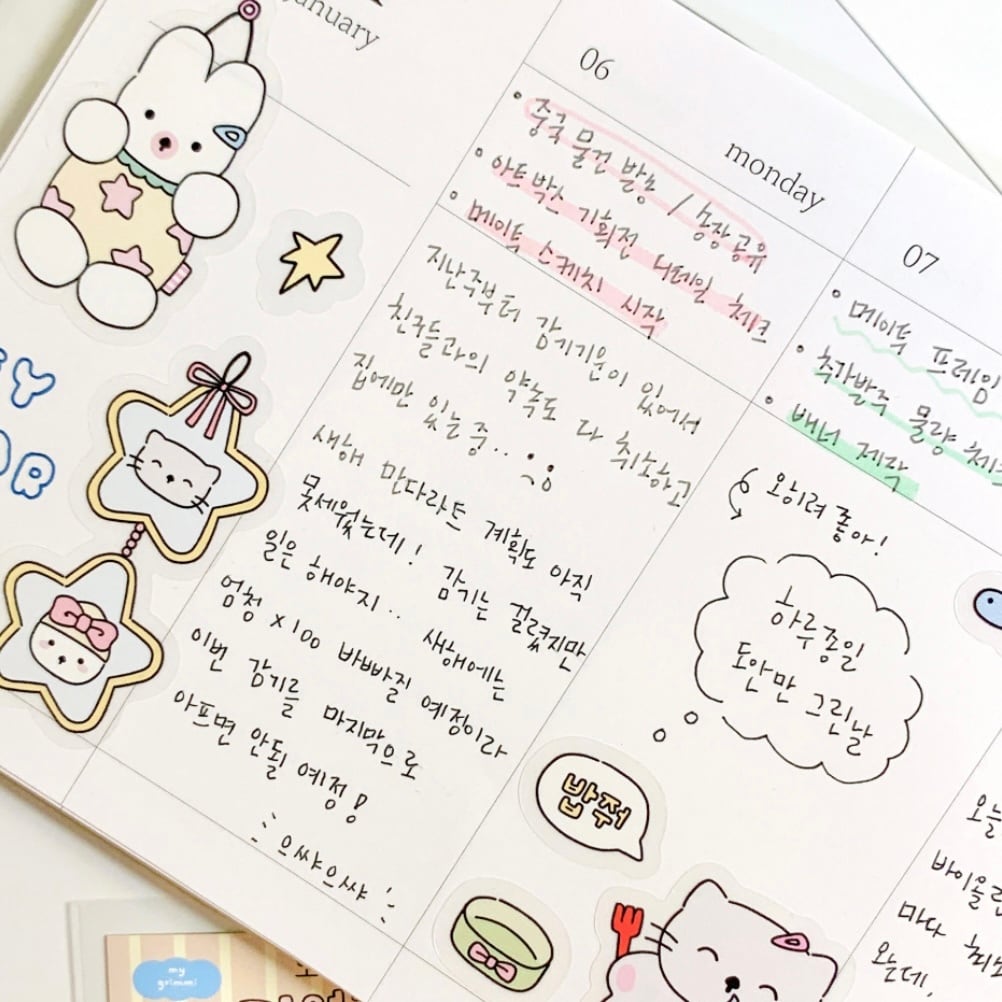 january
06
monday
중국 물건 발송 / 농장공유
아트박스 기획전 디테일 체크
메이트 스케치 시작
지난주부터 감기기운이 있어서
친구들과의 약속도 다 취소하고
집에만 있는 중..
새해 만다라트 계획도 아직
못세웠는데! 감기는 걸렸지만
일은 해야지.. 새해에는
엄청 x100 바빠질 예정이라
이번 감기를 마지막으로
아프면 안될 예정!
으쌰으쌰
07
메이트 프레임
추가발주 물량 체크
배너 제작
오히려 좋아!
하루종일
도안만 그린날
밥줘
오늘
바이올린
마다
왔는데,
my